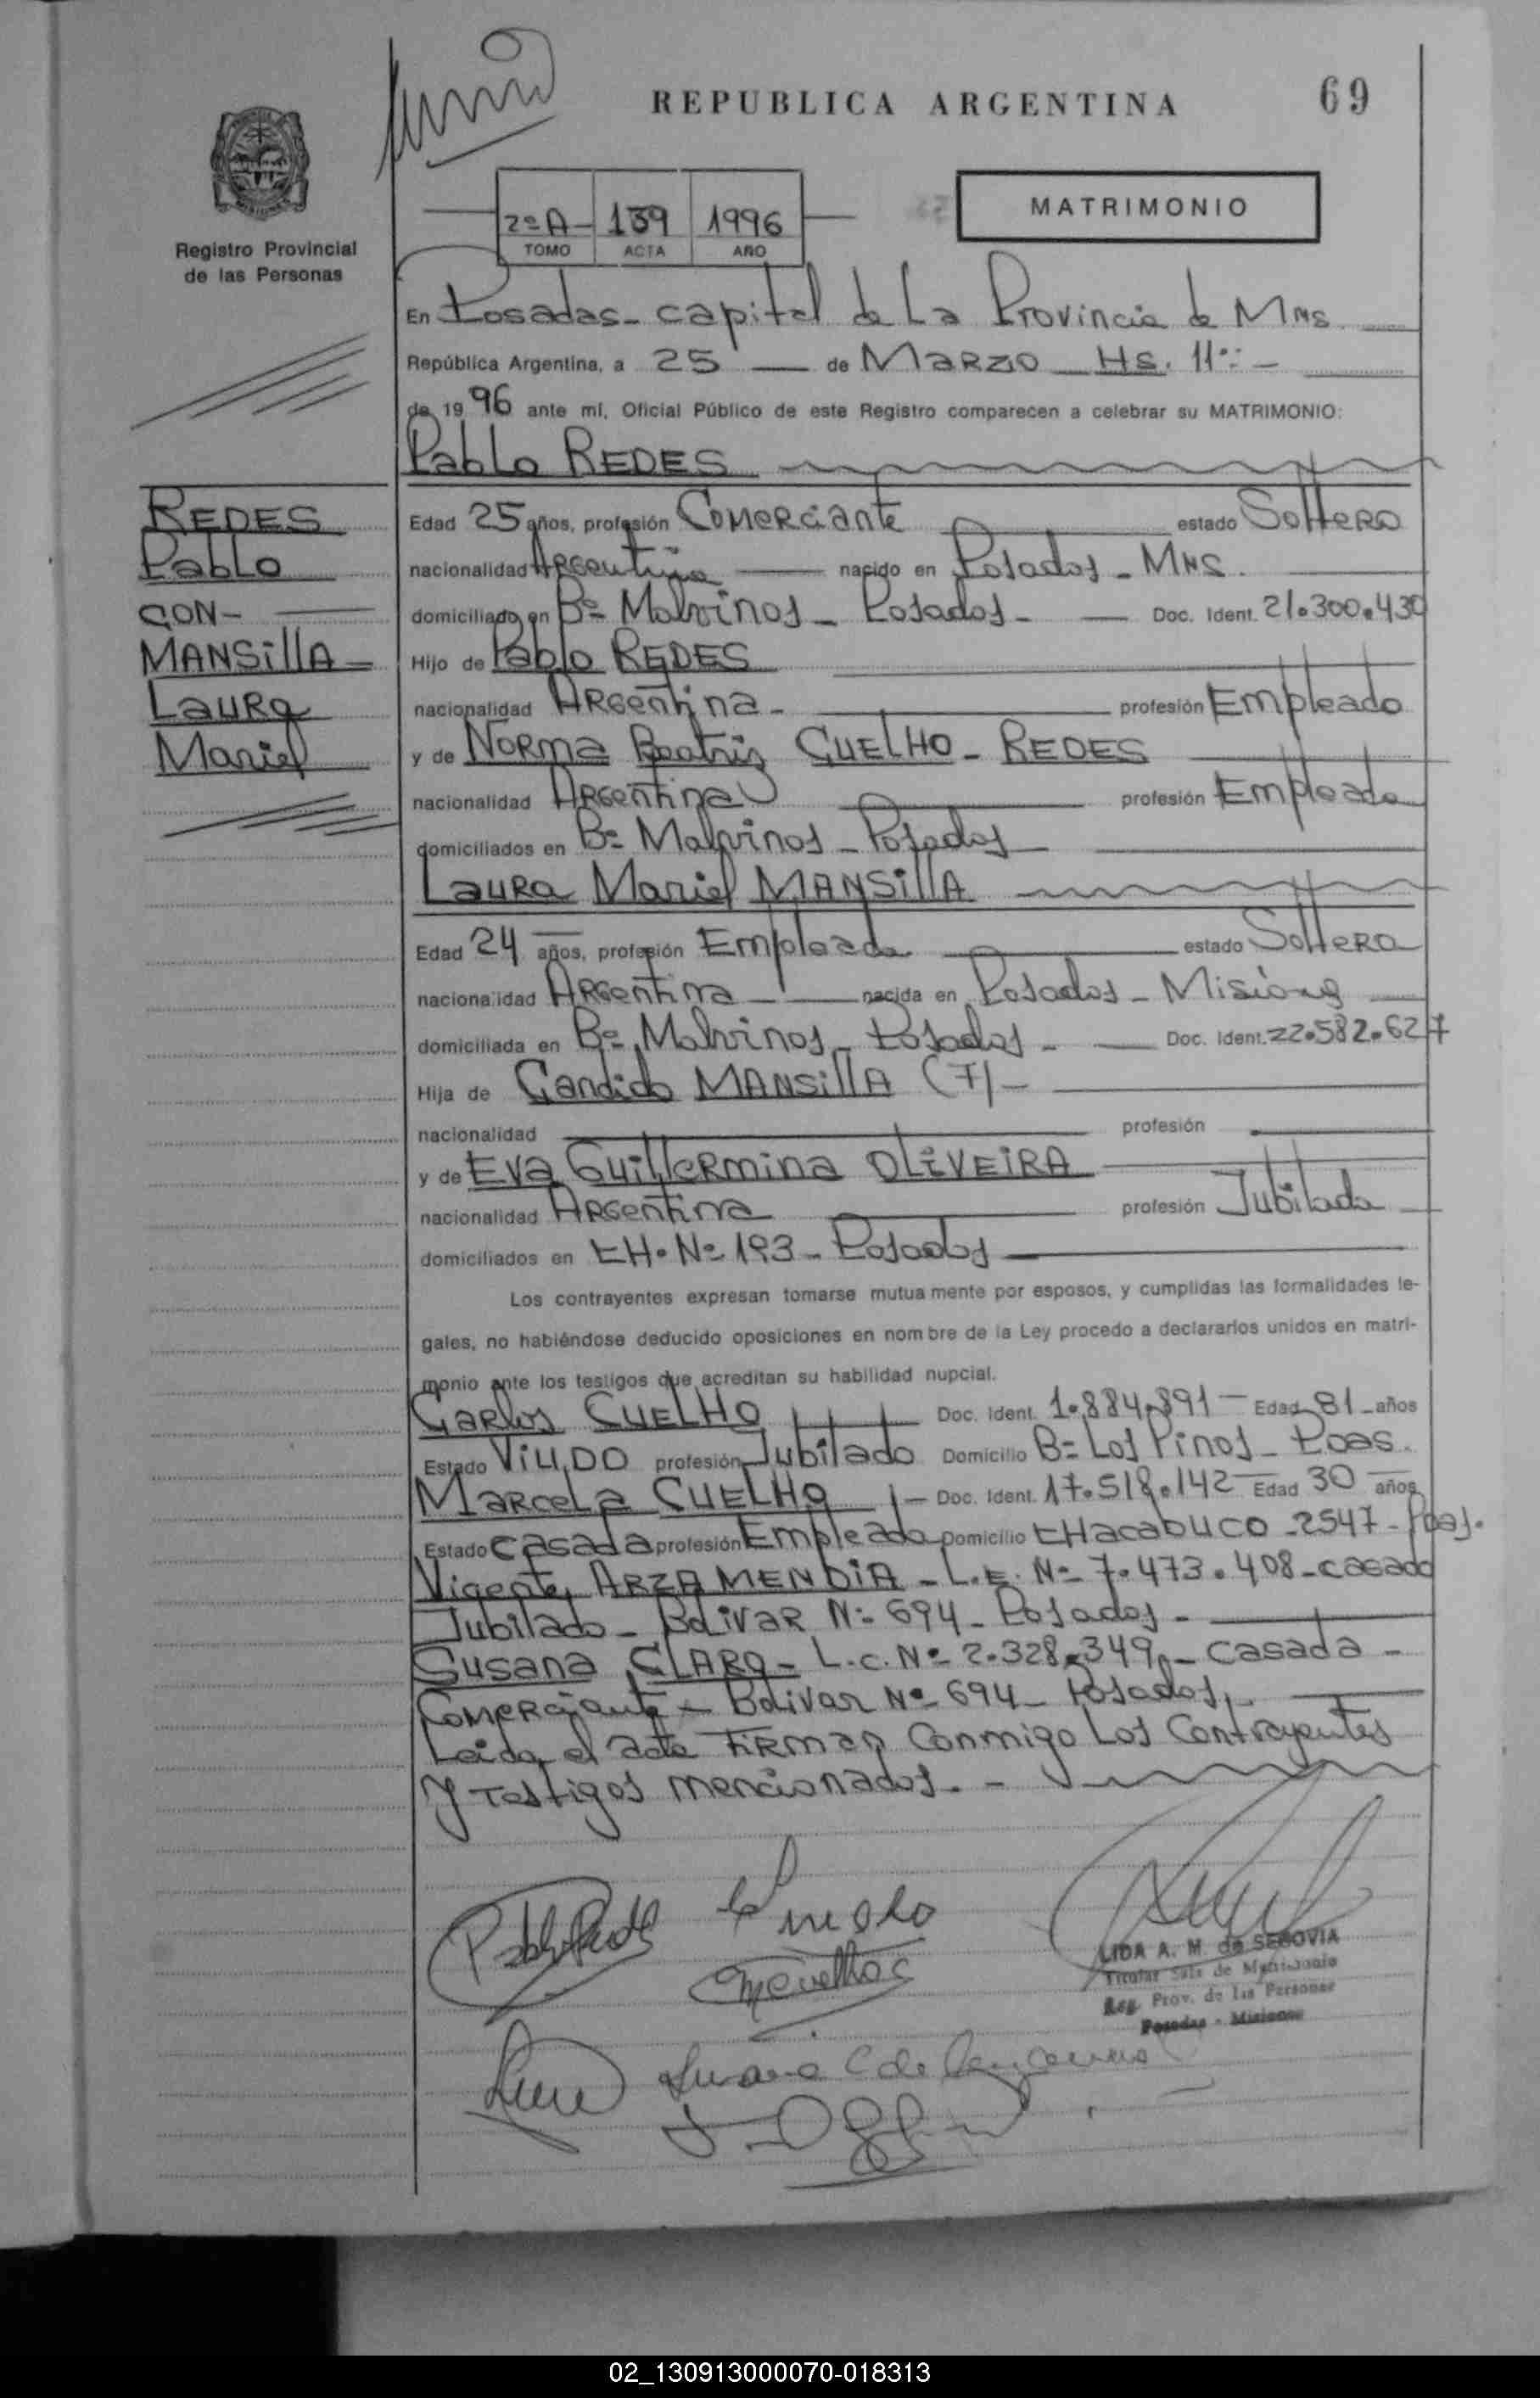 REPUBLICA ARGENTINA
69
Registro Provincial
de las Personas
2º A - 139 1996
TOMO ACTA AÑO
MATRIMONIO
En Posadas - capital de La Provincia de Mns.
República Argentina, a 25 de Marzo Hs. 11:-
de 1996 ante mí, Oficial Público de este Registro comparecen a celebrar su MATRIMONIO:
Pablo REDES
REDES
Pablo
CON-
MANSillA
Laura
Mariel
Edad 25 años, profesión Comerciante estado Soltero
nacionalidad Argentina nacido en Posadas - Mns.
domiciliado en Bº Malvinas - Posadas - Doc. Ident. 21.300.430
Hijo de Pablo REDES
nacionalidad Argentina - profesión Empleado
y de Norma Beatriz CUELHO - REDES
nacionalidad Argentina profesión Empleada
domiciliados en Bº Malvinas - Posadas
Laura Mariel MANSillA
Edad 24 años, profesión Empleada estado Soltera
nacionalidad Argentina nacida en Posadas - Misiones
domiciliada en Bº Malvinas - Posadas - Doc. Ident. 22.582.627
Hija de Candido MANSillA (F) -
nacionalidad profesión
y de Eva Guillermina OLIVEIRA
nacionalidad Argentina profesión Jubilada
domiciliados en CH. Nº 193 - Posadas
Los contrayentes expresan tomarse mutuamente por esposos, y cumplidas las formalidades le-
gales, no habiéndose deducido oposiciones en nombre de la Ley procedo a declararlos unidos en matri-
monio ante los testigos que acreditan su habilidad nupcial.
Carlos CUELHO Doc. Ident. 1.884.891 - Edad 81 - años
Estado Viudo profesión Jubilado Domicilio Bº Los Pinos - Poas.
Marcela CUELHO - Doc. Ident. 17.518.142 Edad 30 años
Estado casada profesión Empleada Domicilio CHacabuco - 2547 - Poas.
Vicente ARZAMENDIA - L.E. Nº 7.473.408 - casado
Jubilado - Bolivar Nº 694 - Posadas -
Susana CLARO - L.C. Nº 2.328.349 - casada -
Comerciante - Bolivar Nº 694 - Posadas.
Leida el acta Firman conmigo Los Contrayentes
y Testigos mencionados. -
LIDA A. M. de SEGOVIA
Titular Sala de Matrimonio
Reg. Prov. de las Personas
Posadas - Misiones
02_130913000070-018313